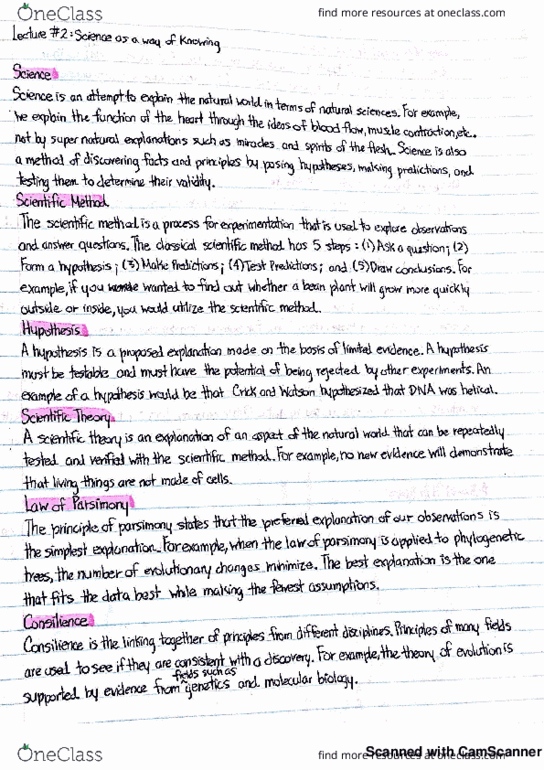 OneClass
find more resources at oneclass.com
Lecture #2: Science as a way of Knowing
Science
Science is an attempt to explain the natural world in terms of natural sciences. For example,
we explain the function of the heart through the ideas of blood flow, muscle contraction, etc.
not by super natural explanations such as miracles and spirits of the flesh. Science is also
a method of discovering facts and principles by posing hypotheses, making predictions, and
testing them to determine their validity.
Scientific Method
The scientific method is a process for experimentation that is used to explore observations
and answer questions. The classical scientific method has 5 steps: (1) Ask a question; (2)
Form a hypothesis; (3) Make Predictions; (4) Test Predictions; and (5) Draw conclusions. For
example, if you wanted to find out whether a bean plant will grow more quickly
outside or inside, you would utilize the scientific method.
Hypothesis
A hypothesis is a proposed explanation made on the basis of limited evidence. A hypothesis
must be testable and must have the potential of being rejected by other experiments. An
example of a hypothesis would be that Crick and Watson hypothesized that DNA was helical.
Scientific Theory
A scientific theory is an explanation of an aspect of the natural world that can be repeatedly
tested and verified with the scientific method. For example, no new evidence will demonstrate
that living things are not made of cells.
Law of Parsimony
The principle of parsimony states that the preferred explanation of our observations is
the simplest explanation. For example, when the law of parsimony is applied to phylogenetic
trees, the number of evolutionary changes minimize. The best explanation is the one
that fits the data best while making the fewest assumptions.
Consilience
Consilience is the linking together of principles from different disciplines. Principles of many fields
are used to see if they are consistent with a discovery. For example, the theory of evolution is
supported by evidence from fields such as genetics and molecular biology.
OneClass
find more resources at oneclass.com
Scanned with CamScanner